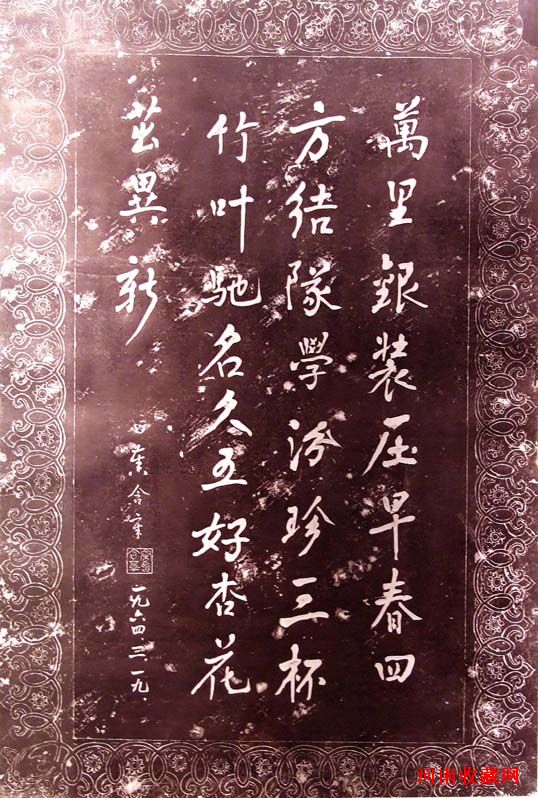 萬里銀装压早春四
方結隊學汾珍三杯
竹叶馳名久五好杏花
茁異新
一九六四 三 一九.
河南收藏网